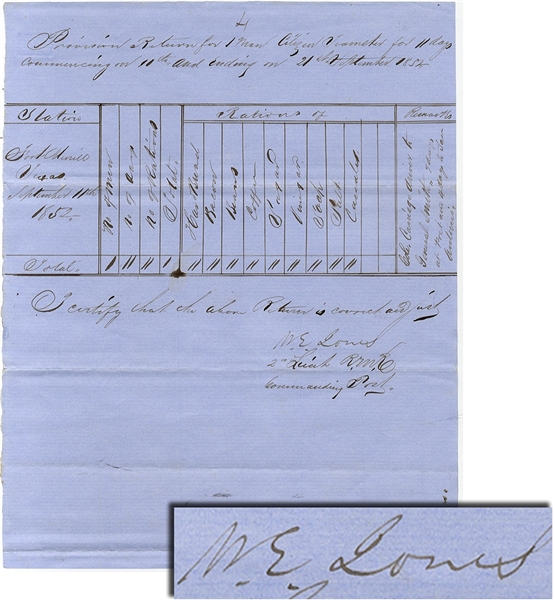 4
Provision Return for 1 Man Citizen Teamster for 11 days
Commencing on 11th and ending on 21st September 1852
Station
Rations of
Remarks
Fort Merrill
Texas
September 11th
1852
No of men
No of days
No of Rations
Total
Hard Bread
Bacon
Beans
Coffee
Sugar
Vinegar
Soap
Salt
Candles
Total
1 11 11 1 11 11 11 11 11 11 11 11 11
I certify that the above Return is correct and just
W E Jones
2nd Lieut R.M.R
Commanding Post.
W. E. Jones